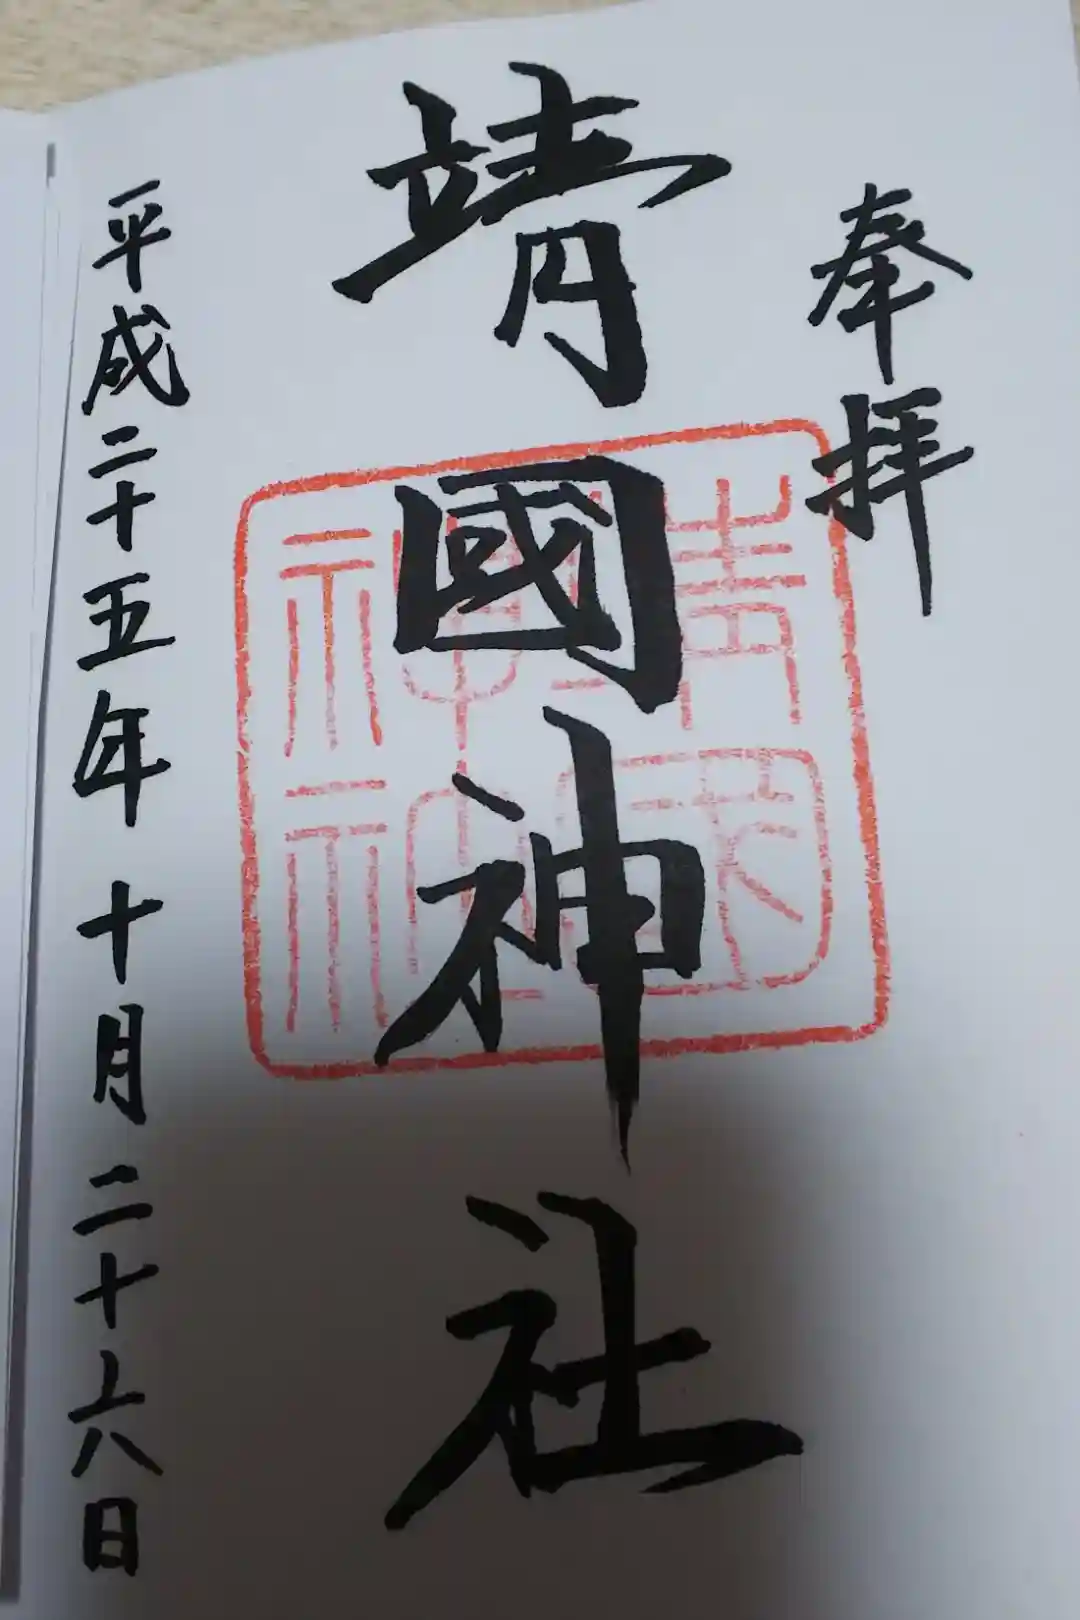 奉拝
靖國神社
靖國
神社
平成二十五年十月二十六日